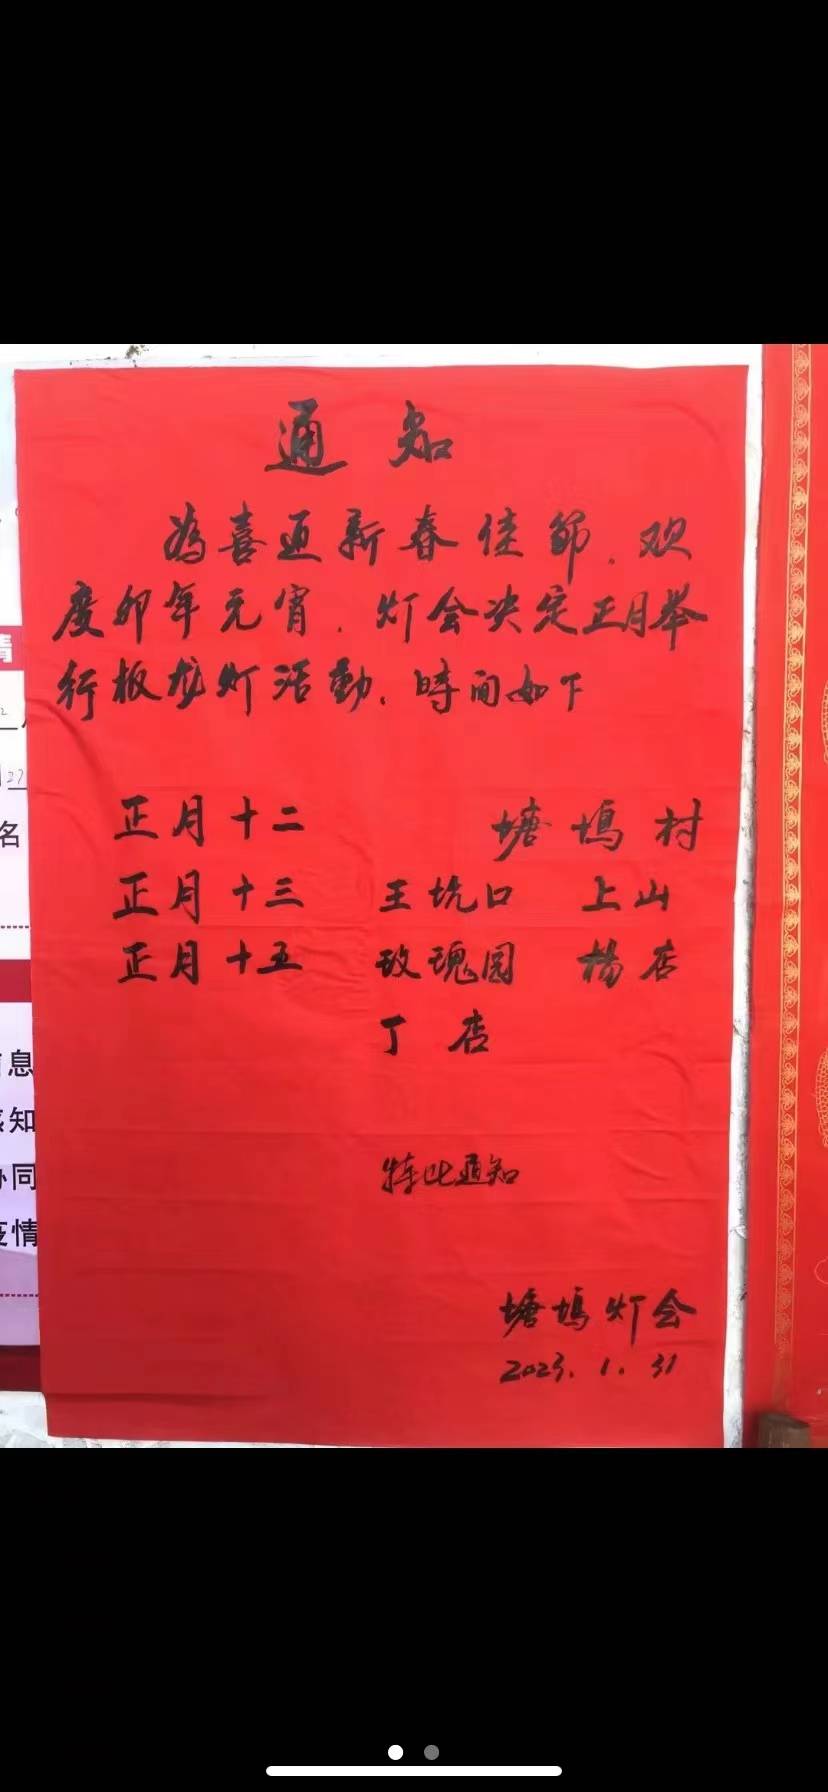 通知
为喜迎新春佳節.欢
度卯年元宵.灯会决定正月举
行板龙灯活動.時间如下
正月十二 塘塢村
正月十三 王坑口 上山
正月十五 玫瑰园 杨店
丁店
特此通知
塘塢灯会
2023.1.31
情
27
名
息
知
协同
疫情